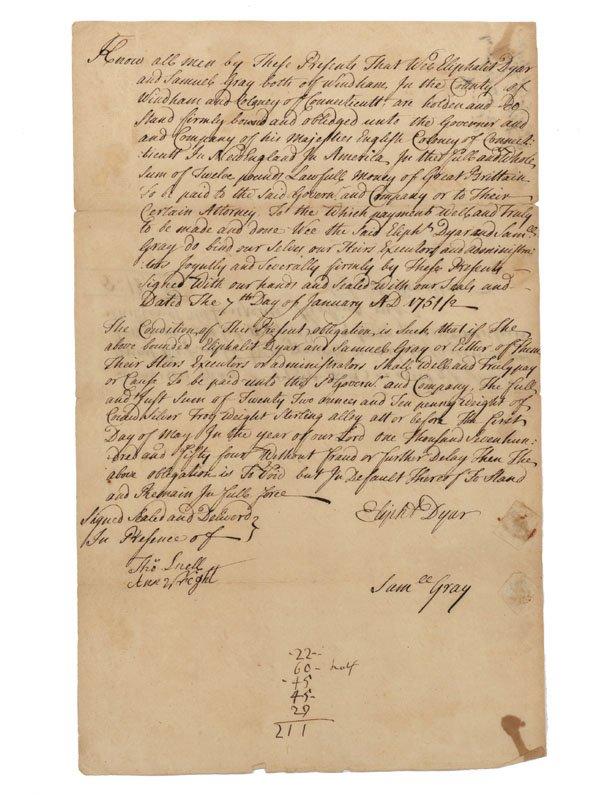 Know all men by These Presents That Wee Eliphalit Dyar
and Samuel Gray both of Windham In the County of
Windham and Colgney of Connecticutt are holden and Do
Stand firmly bound and obledged unto the Governor and
and Company of his Majesties English Coloney of Connec-
ticutt In New England In America In the full and Whole
Sum of Twelve pounds Lawfull Money of Great Brittain
To be paid to the Said Govern.r and Company or to Their
Certain Attorney To the Which payment Well and truly
to be made and done Wee the Said Eliph.t Dyar and Sam.ll
Gray do bind our Selves our Heirs Executors and administra-
tors Joyntly and Severally firmly by These Presents
Signed With our hands and Sealed With our Seals and
Dated The 7th Day of January A D. 1751/2
The Condition of This Present obligation is Such that if The
above bounded Eliphalit Dyar and Samuel Gray or Either of Them
Their Heirs Executors or administrators Shall Well and truly pay
or Cause To be paid unto the S.d Govern.r and Company The full
and Just Sum of Twenty Two ounces and Ten penny Weight of
Coind Silver Troy Weight Sterling alloy att or before The First
Day of May In the year of our Lord one Thousand Seventeen
dred and fifty four Without fraud or further Delay Then The
above obligation is To Void but In Default Thereof To Stand
and Remain In full force
Signed Sealed and Deliverd
In Presence of
Eliph.t Dyar
Tho.s
Ann Wright
Sam.ll Gray
22
60 half
45
45
29
211